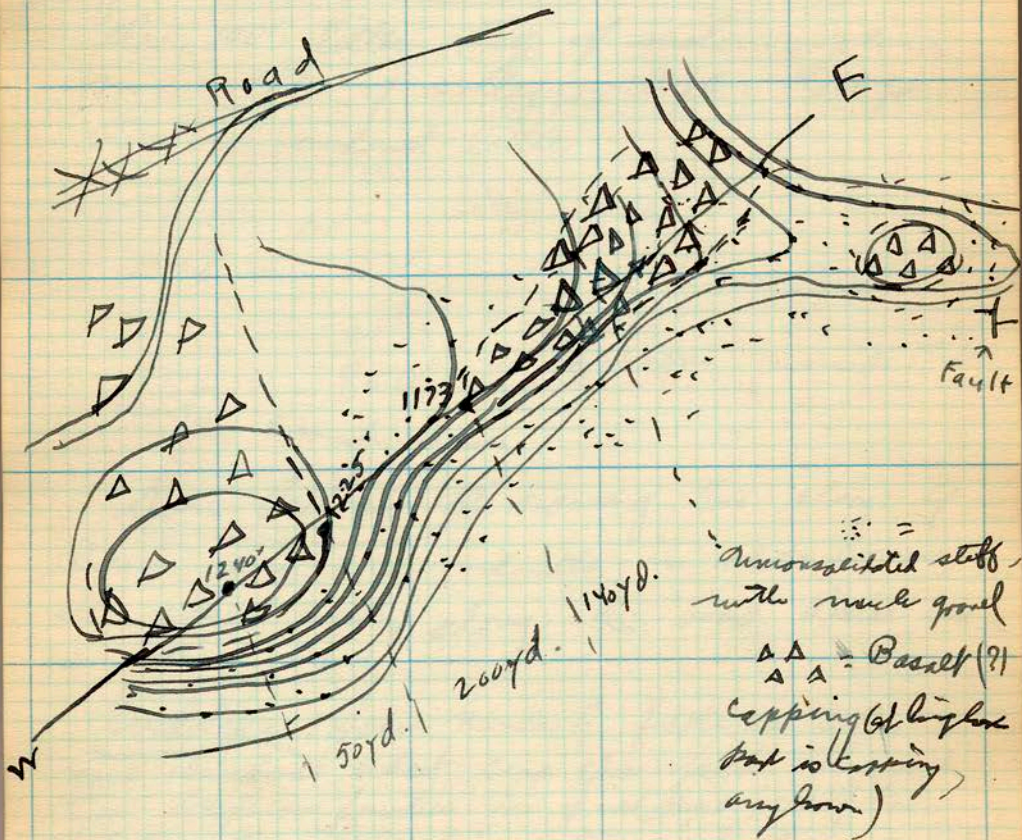 Road
E
Fault
1173
1225
1240
W
50 yd.
200 yd.
140 yd.
unconsolidated stuff,
with much gravel
= Basalt (?)
capping (at
part is capping,
anyhow)